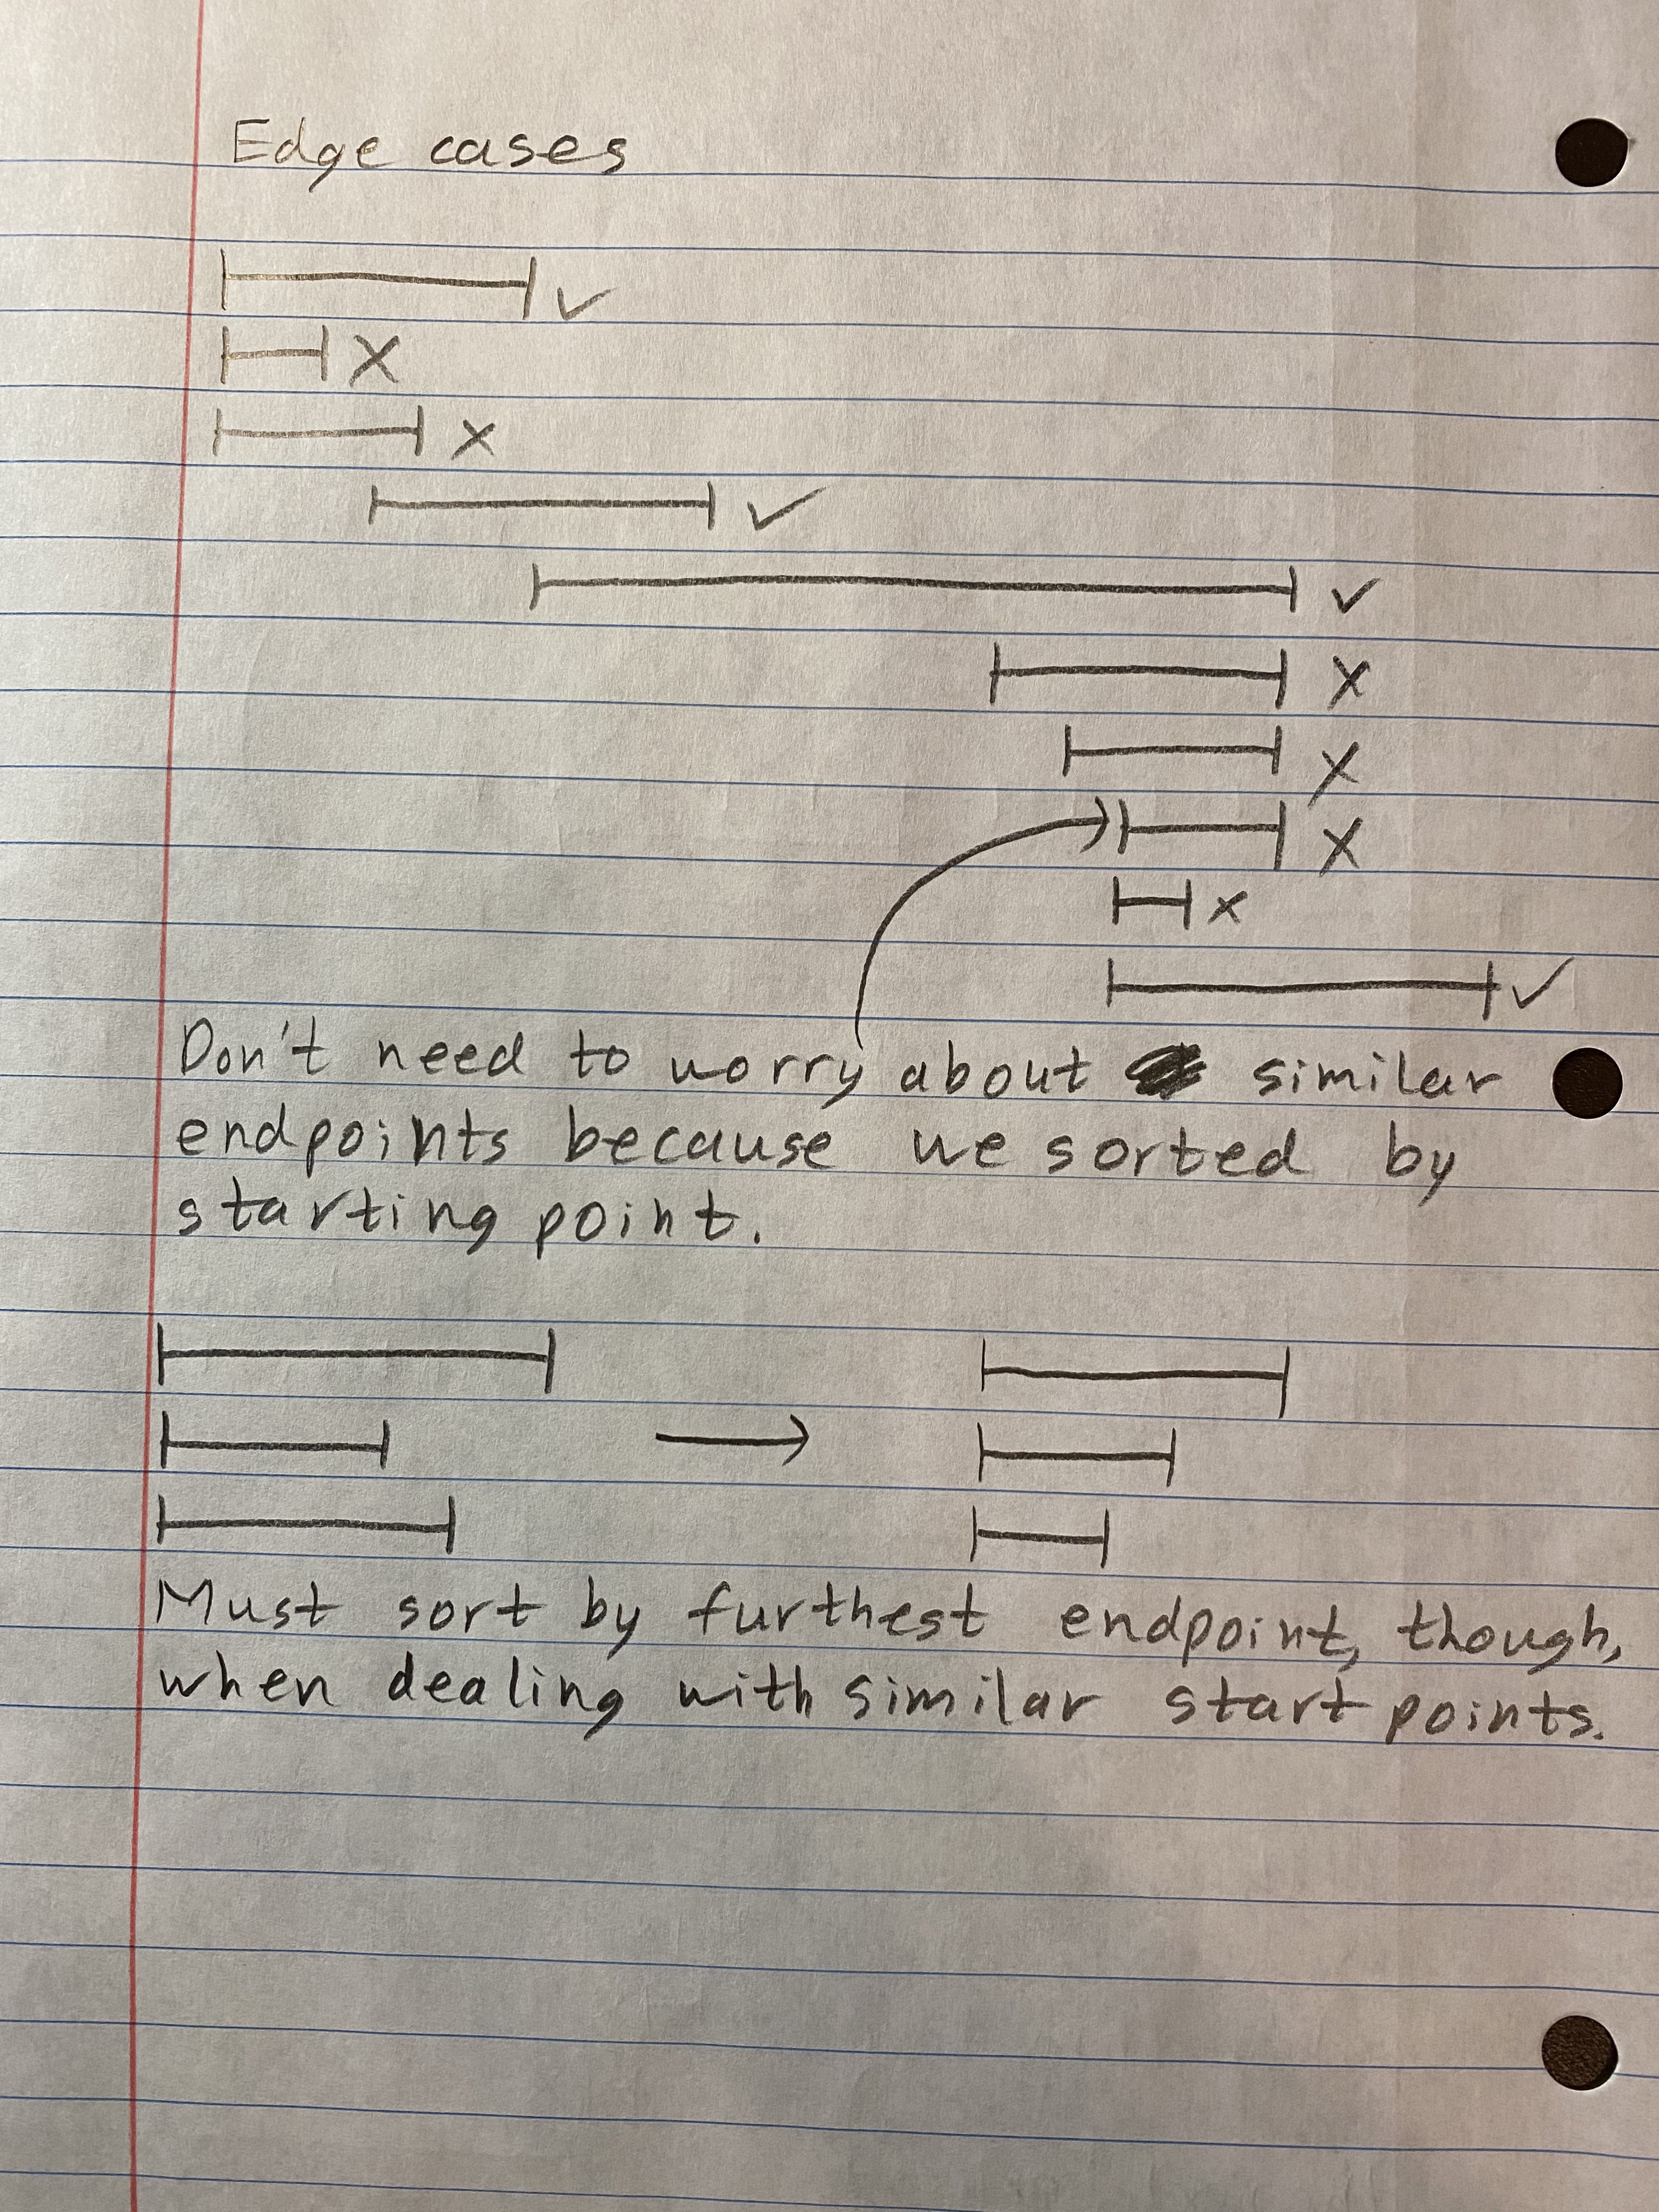 Edge cases
Don't need to worry about similar
endpoints because we sorted by
starting point.
Must sort by furthest endpoint, though,
when dealing with similar start points.